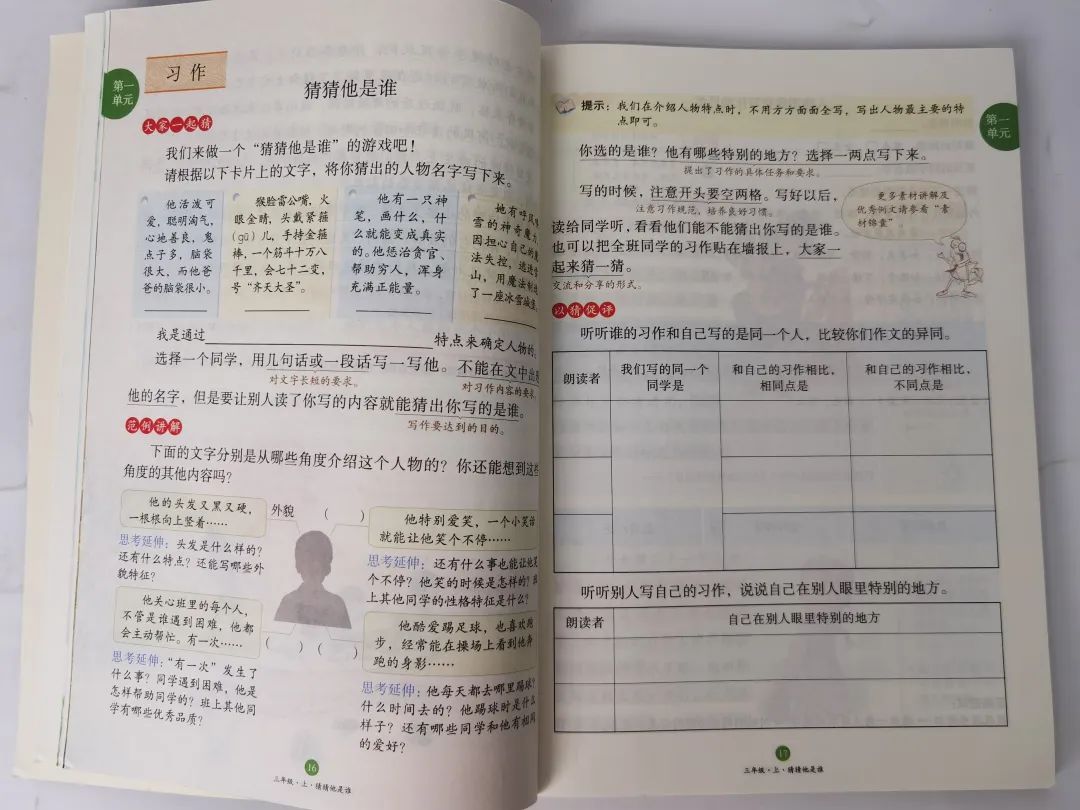 第一
单元
习作
猜猜他是谁
大家一起猜
我们来做一个“猜猜他是谁”的游戏吧！
请根据以下卡片上的文字，将你猜出的人物名字写下来。
他活泼可
爱，聪明淘气，
心地善良，鬼
点子多，脑袋
很大，而他爸
爸的脑袋很小。
猴脸雷公嘴，火
眼金睛，头戴紧箍
（gū）儿，手持金箍
棒，一个筋斗十万八
千里，会七十二变，
号“齐天大圣”。
他有一只神
笔，画什么，什
么就能变成真实
的。他惩治贪官、
帮助穷人，浑身
充满正能量。
她有呼风唤
雪的神奇魔力，
因担心自己的魔
法失控，逃进雪
山，用魔法制造
了一座冰雪城堡。
我是通过
特点来确定人物的。
选择一个同学，用几句话或一段话写一写他。不能在文中出现
对文字长短的要求。
对习作内容的要求。
他的名字，但是要让别人读了你写的内容就能猜出你写的是谁。
写作要达到的目的。
范例讲解
下面的文字分别是从哪些角度介绍这个人物的？你还能想到这些
角度的其他内容吗？
他的头发又黑又硬，
一根根向上竖着……
外貌
（ ）
他特别爱笑，一个小笑话
就能让他笑个不停……
思考延伸：头发是什么样的？
还有什么特点？还能写哪些外
貌特征？
思考延伸：还有什么事也能让他笑
个不停？他笑的时候是怎样的？班
上其他同学的性格特征是什么？
他关心班里的每个人，
不管是谁遇到困难，他都
会主动帮忙。有一次……
（ ）
（ ）
他酷爱踢足球，也喜欢跑
步，经常能在操场上看到他奔
跑的身影……
思考延伸：“有一次”发生了
什么事？同学遇到困难，他是
怎样帮助同学的？班上其他同
学有哪些优秀品质？
思考延伸：他每天都去哪里踢球？
什么时间去的？他踢球时是什么
样子？还有哪些同学和他有相同
的爱好？
16
三年级·上·猜猜他是谁
提示：我们在介绍人物特点时，不用方方面面全写，写出人物最主要的特
点即可。
第一
单元
你选的是谁？他有哪些特别的地方？选择一两点写下来。
提出了习作的具体任务和要求。
写的时候，注意开头要空两格。写好以后，
注意习作规范，培养良好习惯。
读给同学听，看看他们能不能猜出你写的是谁。
也可以把全班同学的习作贴在墙报上，大家一
起来猜一猜。
交流和分享的形式。
更多素材讲解及
优秀例文请参看“素
材锦囊”。
以猜促评
听听谁的习作和自己写的是同一个人，比较你们作文的异同。
朗读者
我们写的同一个
同学是
和自己的习作相比，
相同点是
和自己的习作相比，
不同点是
听听别人写自己的习作，说说自己在别人眼里特别的地方。
朗读者
自己在别人眼里特别的地方
17
三年级·上·猜猜他是谁